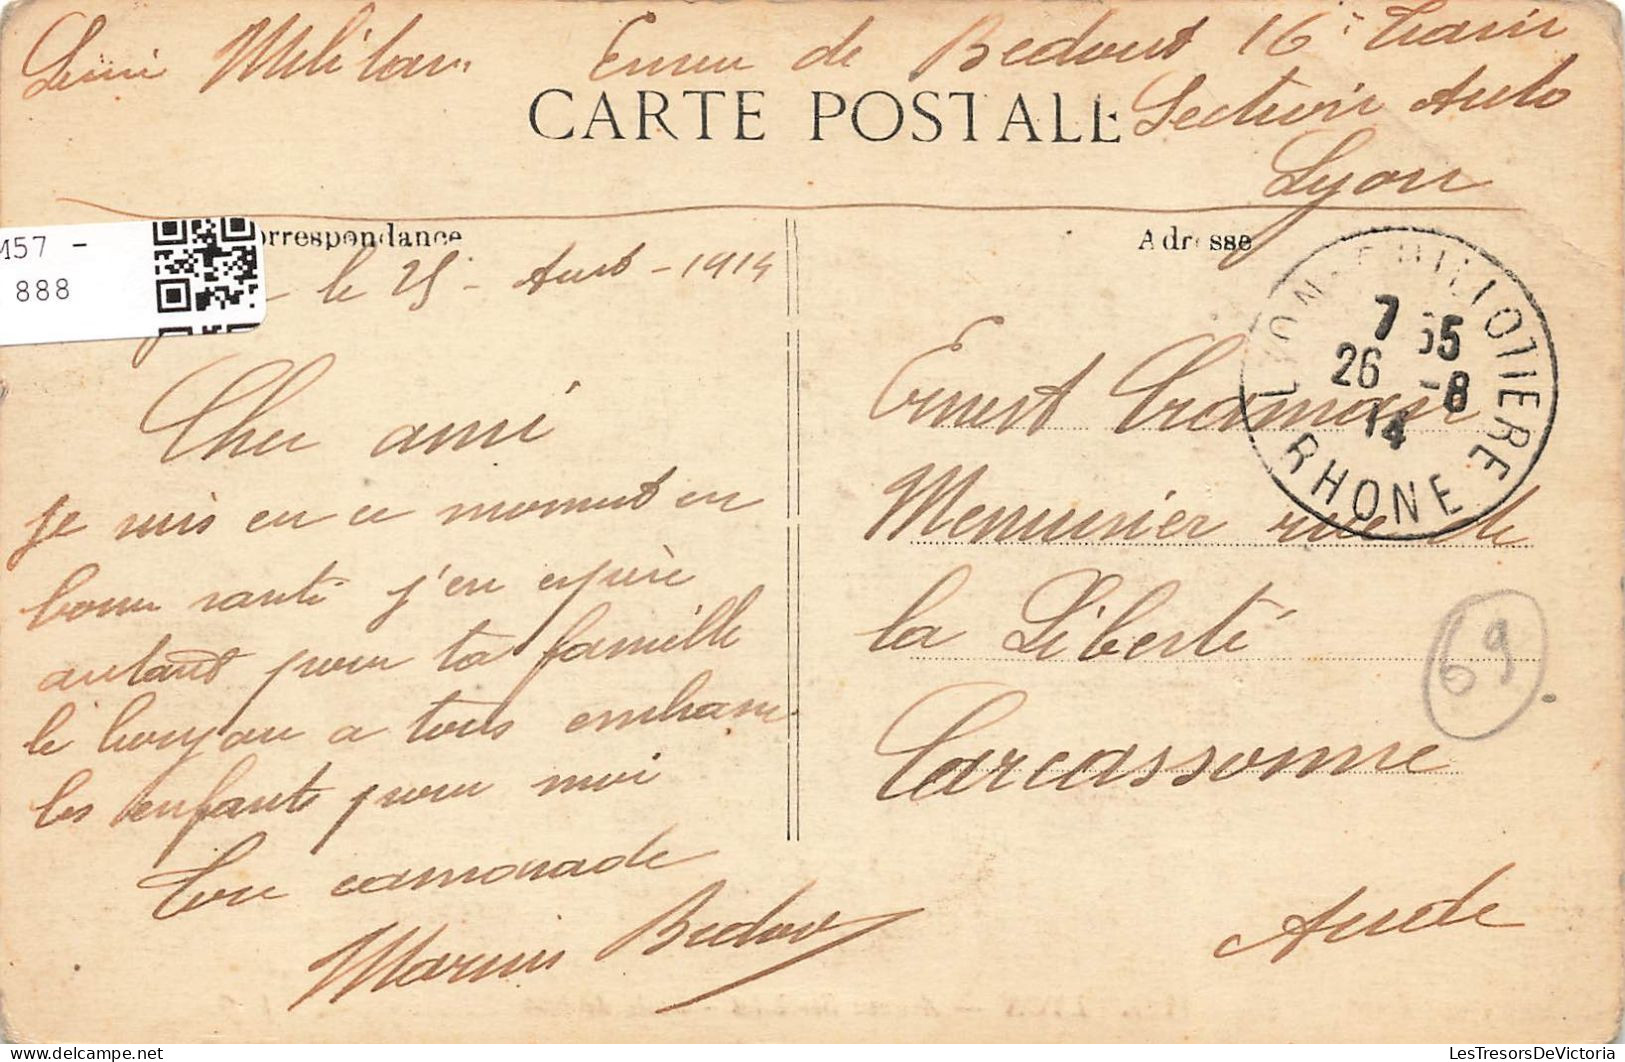 Militaire Envoi de Bedout 16e Train
CARTE POSTALE
Section Auto
Lyon
M57 -
888
orrespondance
Adresse
le 25 - Aout - 1914
LYON-GUILLOTIERE
7 55
26 -8
14
RHONE
Cher ami
je suis en ce moment en
bonne santé j'en espère
autant pour ta famille
le bonjour a tous embrasse
les enfants pour moi
Ton camarade
Marius Bedout
Ernest
Menuisier rue de
la Liberté
Carcassonne
Aude
69
LesTresorsDeVictoria.com